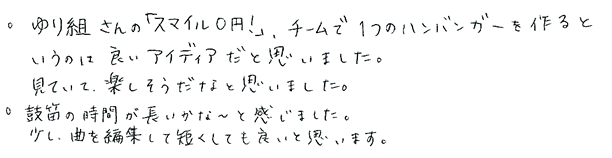 。ゆり組さんの「スマイル0円!」、チームで1つのハンバンガーを作ると
いうのは良いアイディアだと思いました。
見ていて、楽しそうだなと思いました。
。鼓笛の時間が長いかな〜と感じました。
少し、曲を編集して短くしても良いと思います。